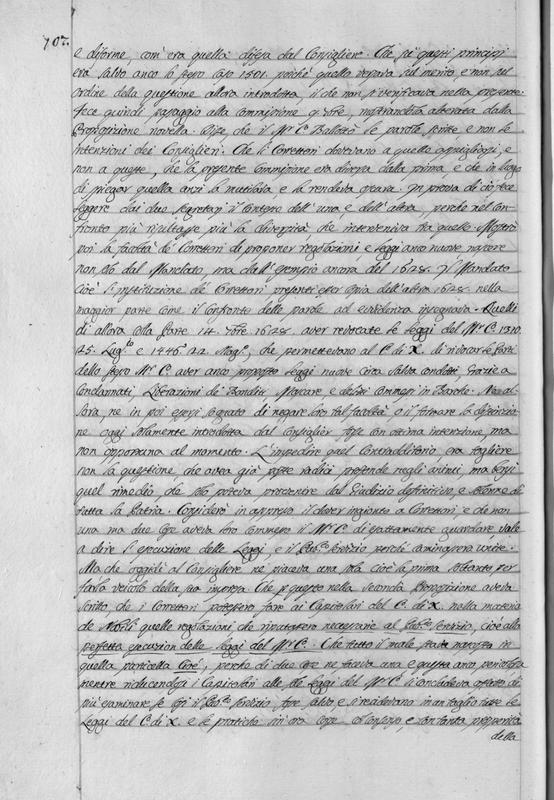 707.
e diforme, com' era quella difesa dal Consigliere. Che per questi principj
era salvo anco lo stesso caso 1501. poichè quello versava sul merito, e non sul
ordine della questione allora introdotta, il che non si verificava nella presente.
Fece quindi passaggio alla commissione 9. 7bre, mostrandola alterata dalla
Proposizione novella. Disse che il Mr. C. Ballottò le parole scritte e non le
Intenzioni dei Consiglieri. Che li Correttori dovevano a quelle appigliarsi, e
non a queste, che la presente Commissione era diversa dalla prima, e che in luogo
di spiegar quella anzi la mutilava, e la rendeva oscura. In prova di ciò fece
leggere dai due Segretarj il contesto dell' una, e dell' altra, perchè nel con-
fronto più risultasse più la diversità che interveniva fra quelle. Mostrò
poi la facoltà de' Correttori di proponer regolazioni, e leggi anco nuove nascere
non solo dal Mandato, ma dall' esempio ancora del 1628. Il Mandato
cioè l' instituzione de' Correttori presenti esser copia dell' altra 1628. nella
maggior parte come il confronto delle parole ad evidenza insegnava. Quelli
di allora colla Parte 14. 7bre 1628. aver revocate le Leggi del Mr. C. 1310
25. Lugto e 1446 22 Magio, che permettevano al C. di X. di rivocar le Parti
dello stesso Mr. C. aver anco proposto Leggi nuove circa Salvi condotti, Grazie a
Condannati, Liberazioni de' Banditi, Mascare, e delitti commessi in Barche. Ne al-
lora, ne in poi essersi sognato di negare loro tal facoltà, o il firmare la distinzio-
ne oggi solamente introdotta dal Consiglier forse con ottima intenzione, ma
non opportuna al momento. L' impedire quel contradditorio, era togliere
non la questione, che avea già poste radici profonde negli animi, ma bensì
quel rimedio che solo poteva provenire dal Giudizio definitivo, e sovrano di
tutta la Patria. Considerò in appresso il dover ingionto a Correttori, e che non
una ma due cose aveva loro commesso il Mr. C. di esattamente guardare, vale
a dire l' esecuzione delle Leggi, e il Pubco servizio perchè caminassero unite.
Ma che oggidì al Consigliere ne piaceva una sola cioè la prima soltanto per
farla veicolo della sua. Che per questo nella seconda Proposizione aveva
scritto che i Correttori potessero fare ai Capitolari del C. di X. nella materia
de Nobili quelle regolazioni che riputassero necessarie al Pubco servizio, cioè alla
perfetta esecuzion delle leggi del Mr. C. Che tutto il male stava nascosto in
quella particella Cioè, perchè di due cose ne faceva una e questa anco pericolosa
mentre riducendosi i Capitolari alle sole Leggi del Mr. C. si concludeva affatto di
più esaminare se così il Pubco servizio fosse salvo, e si recidevano in un taglio tutte le
Leggi del C. di X. e le pratiche in ora corse col consenso, e con tanta prosperità
della